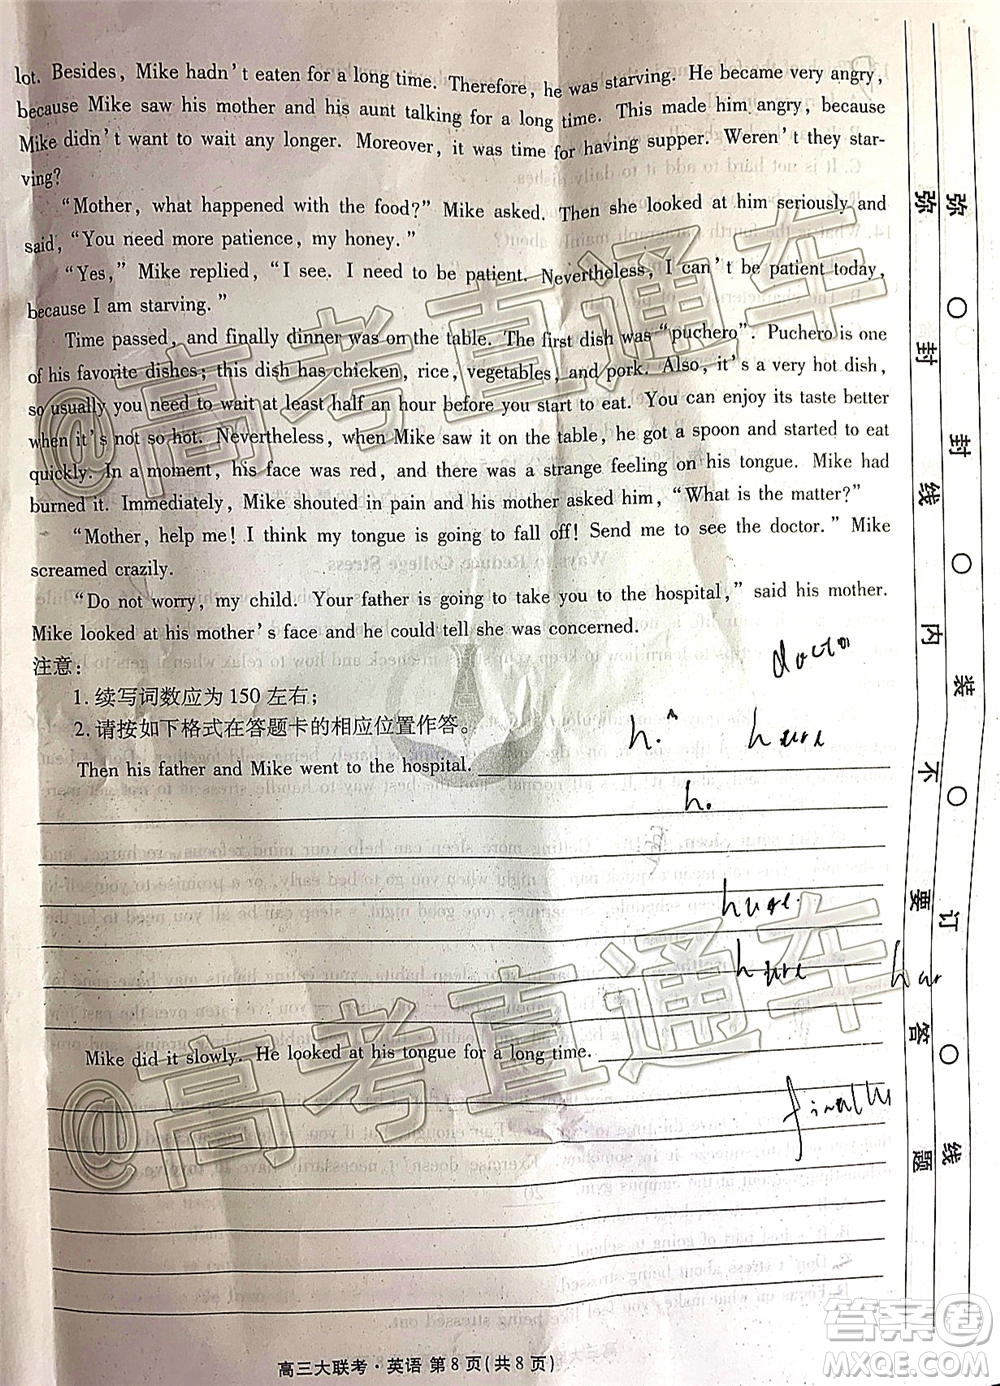 lot. Besides, Mike hadn't eaten for a long time. Therefore, he was starving. He became very angry,
because Mike saw his mother and his aunt talking for a long time. This made him angry, because
Mike didn't want to wait any longer. Moreover, it was time for having supper. Weren't they star-
ving?
"Mother, what happened with the food?" Mike asked. Then she looked at him seriously and
said, "You need more patience, my honey."
"Yes," Mike replied, "I see. I need to be patient. Nevertheless, I can't be patient today,
because I am starving."
Time passed, and finally dinner was on the table. The first dish was "puchero". Puchero is one
of his favorite dishes; this dish has chicken, rice, vegetables, and pork. Also, it's a very hot dish,
so usually you need to wait at least half an hour before you start to eat. You can enjoy its taste better
when it's not so hot. Nevertheless, when Mike saw it on the table, he got a spoon and started to eat
quickly. In a moment, his face was red, and there was a strange feeling on his tongue. Mike had
burned it. Immediately, Mike shouted in pain and his mother asked him, "What is the matter?"
"Mother, help me! I think my tongue is going to fall off! Send me to see the doctor." Mike
screamed crazily.
"Do not worry, my child. Your father is going to take you to the hospital," said his mother.
Mike looked at his mother's face and he could tell she was concerned.
注意：
1. 续写词数应为 150 左右；
2. 请按如下格式在答题卡的相应位置作答。
Then his father and Mike went to the hospital.
Mike did it slowly. He looked at his tongue for a long time.
高三大联考·英语 第 8 页(共 8 页)
弥 封 线 内 不 要 答 题
弥 ○ 封 ○ 装 ○ 订 ○ 线
@高考直通车
@高考直通车
答案圈
MXQE.COM